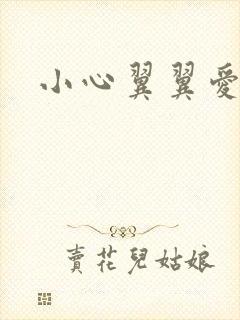 小心翼翼愛
賣花兒姑娘